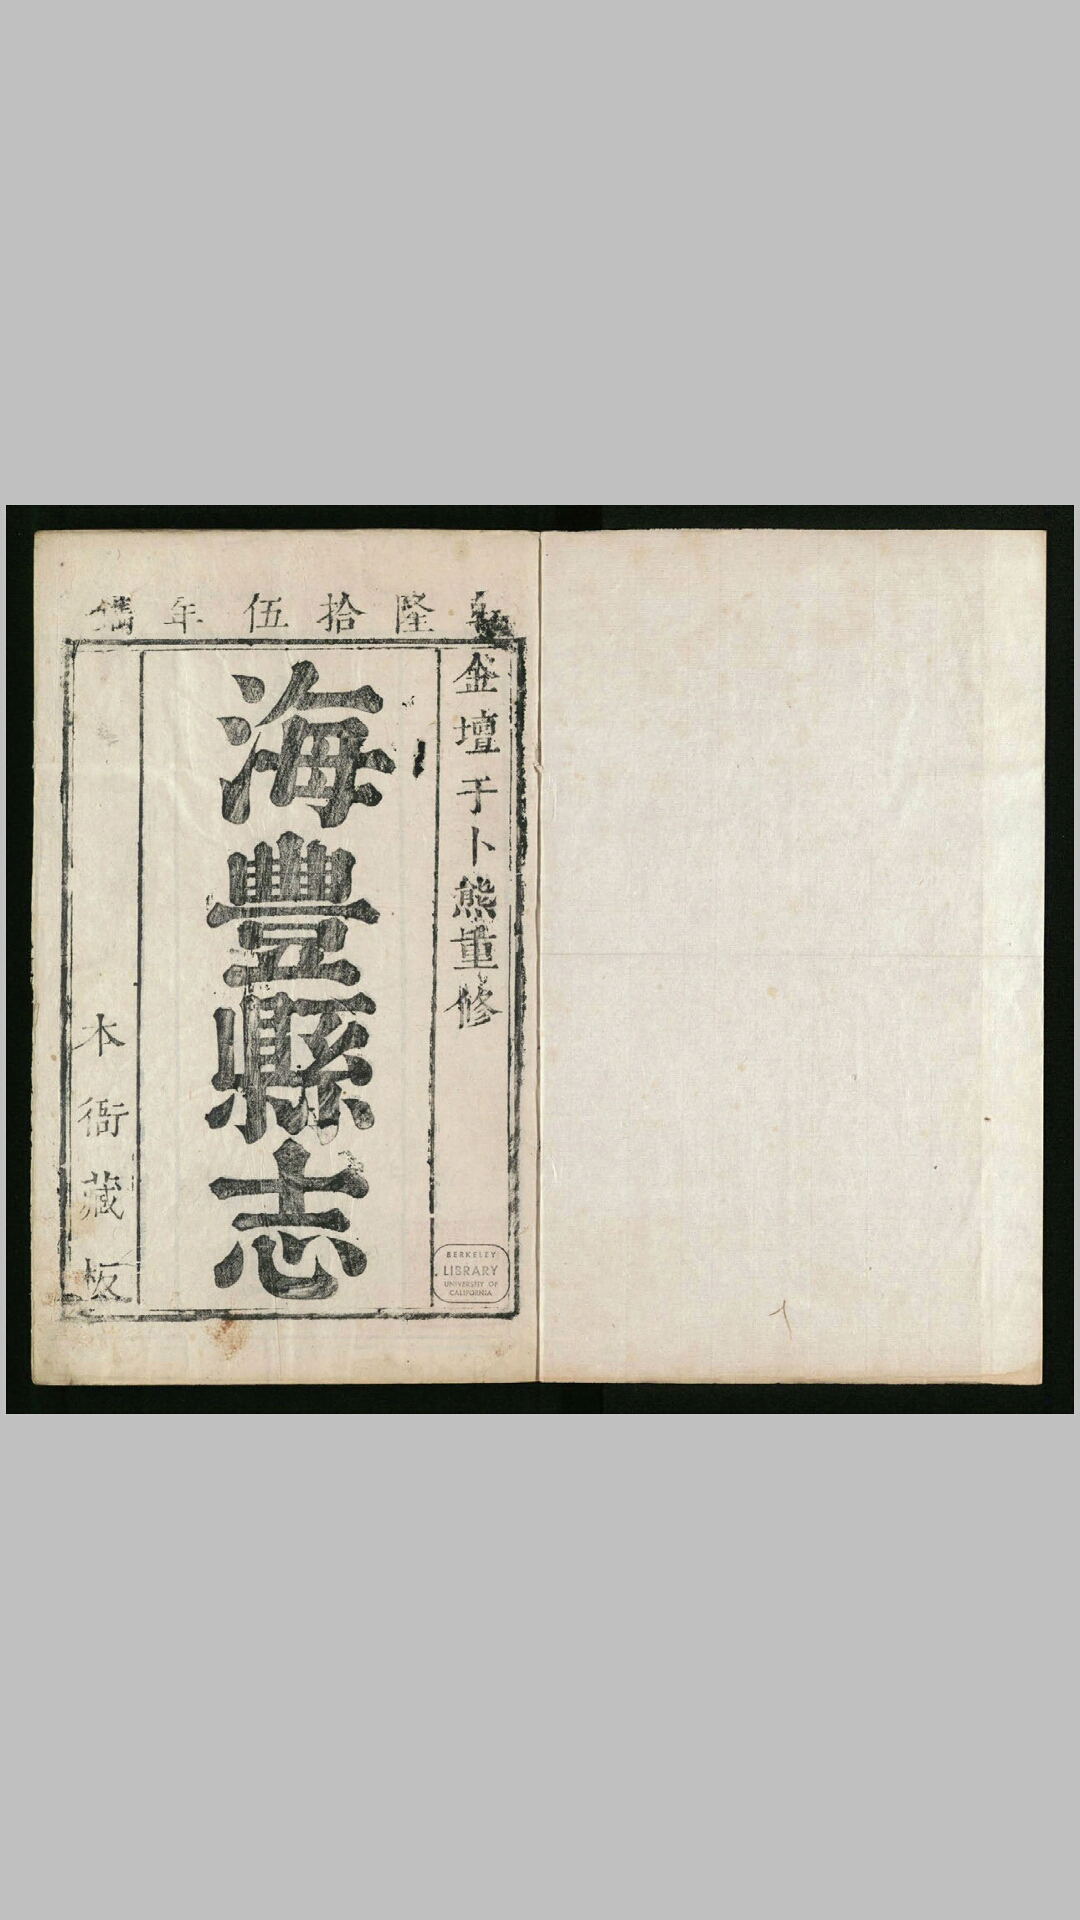 乾隆拾伍年鐫
金壇于卜熊重修
海豐縣志
本衙藏板
BERKELEY
LIBRARY
UNIVERSITY OF
CALIFORNIA